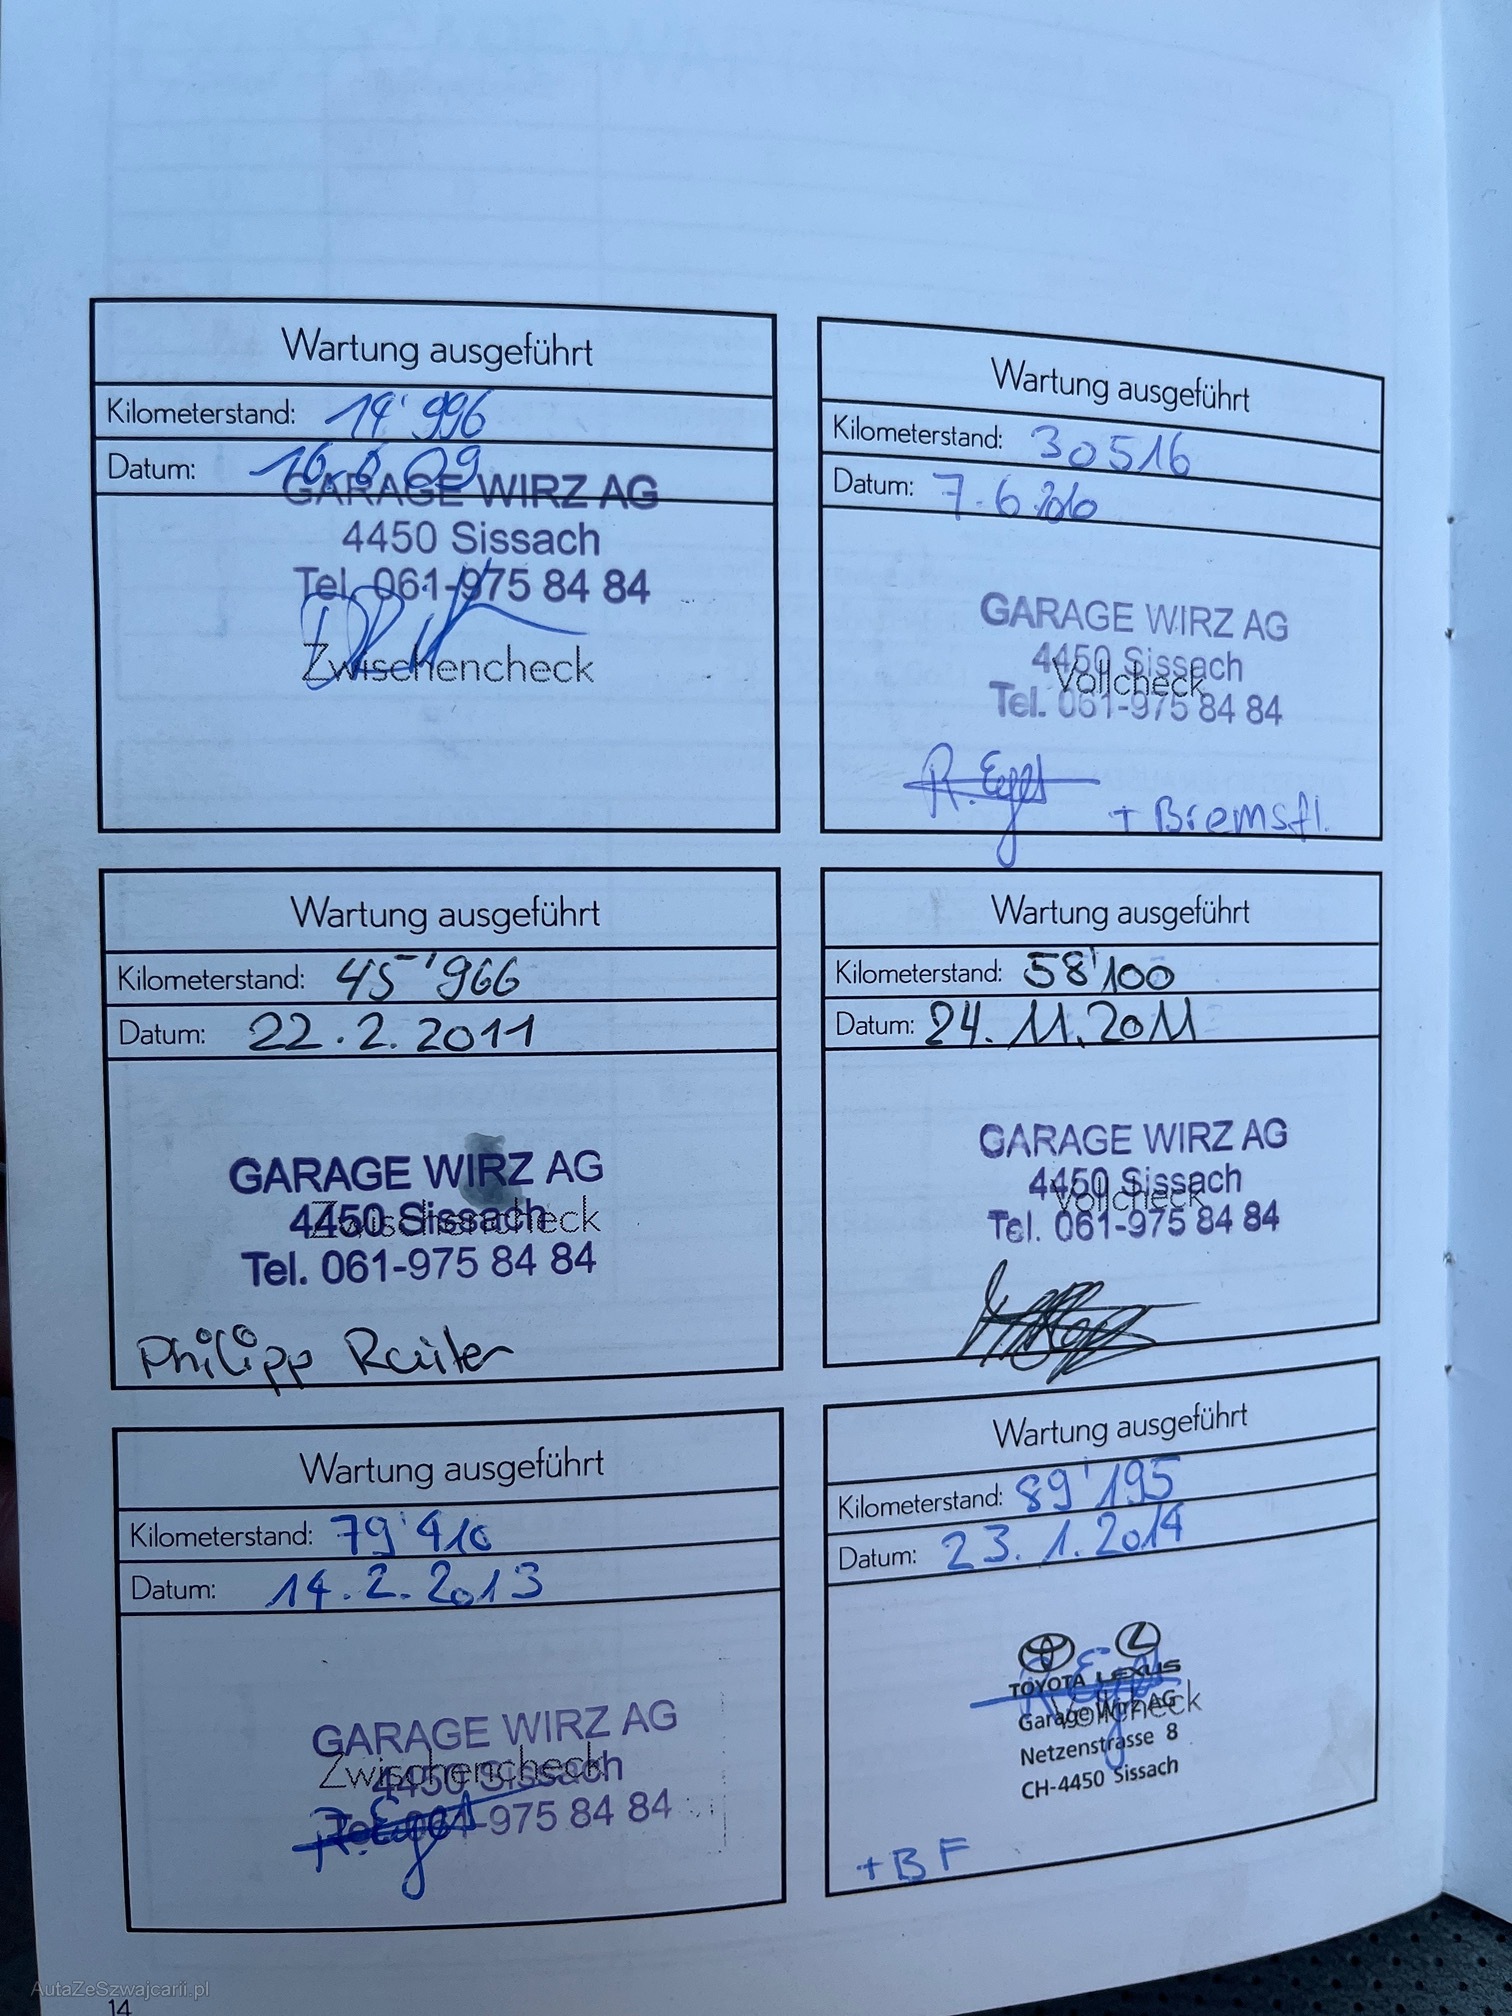 Wartung ausgeführt
Kilometerstand: 14'996
Datum: 16.6.09
GARAGE WIRZ AG
4450 Sissach
Tel. 061-975 84 84
Zwischencheck
Wartung ausgeführt
Kilometerstand: 30516
Datum: 7.6.
GARAGE WIRZ AG
4450 Sissach
Vollcheck
Tel. 061-975 84 84
+ Bremsfl.
Wartung ausgeführt
Kilometerstand: 45'966
Datum: 22.2.2011
GARAGE WIRZ AG
4450 Sissach
Zwischencheck
Tel. 061-975 84 84
Philipp
Wartung ausgeführt
Kilometerstand: 58'100
Datum: 24.11.2011
GARAGE WIRZ AG
4450 Sissach
Vollcheck
Tel. 061-975 84 84
Wartung ausgeführt
Kilometerstand: 79'410
Datum: 14.2.2013
GARAGE WIRZ AG
Zwischencheck
4450 Sissach
Tel. 061-975 84 84
Wartung ausgeführt
Kilometerstand: 89'195
Datum: 23.1.2014
TOYOTA LEXUS
Garage Wirz AG
Vollcheck
Netzenstrasse 8
CH-4450 Sissach
+ B F
AutaZeSzwajcarii.pl
14